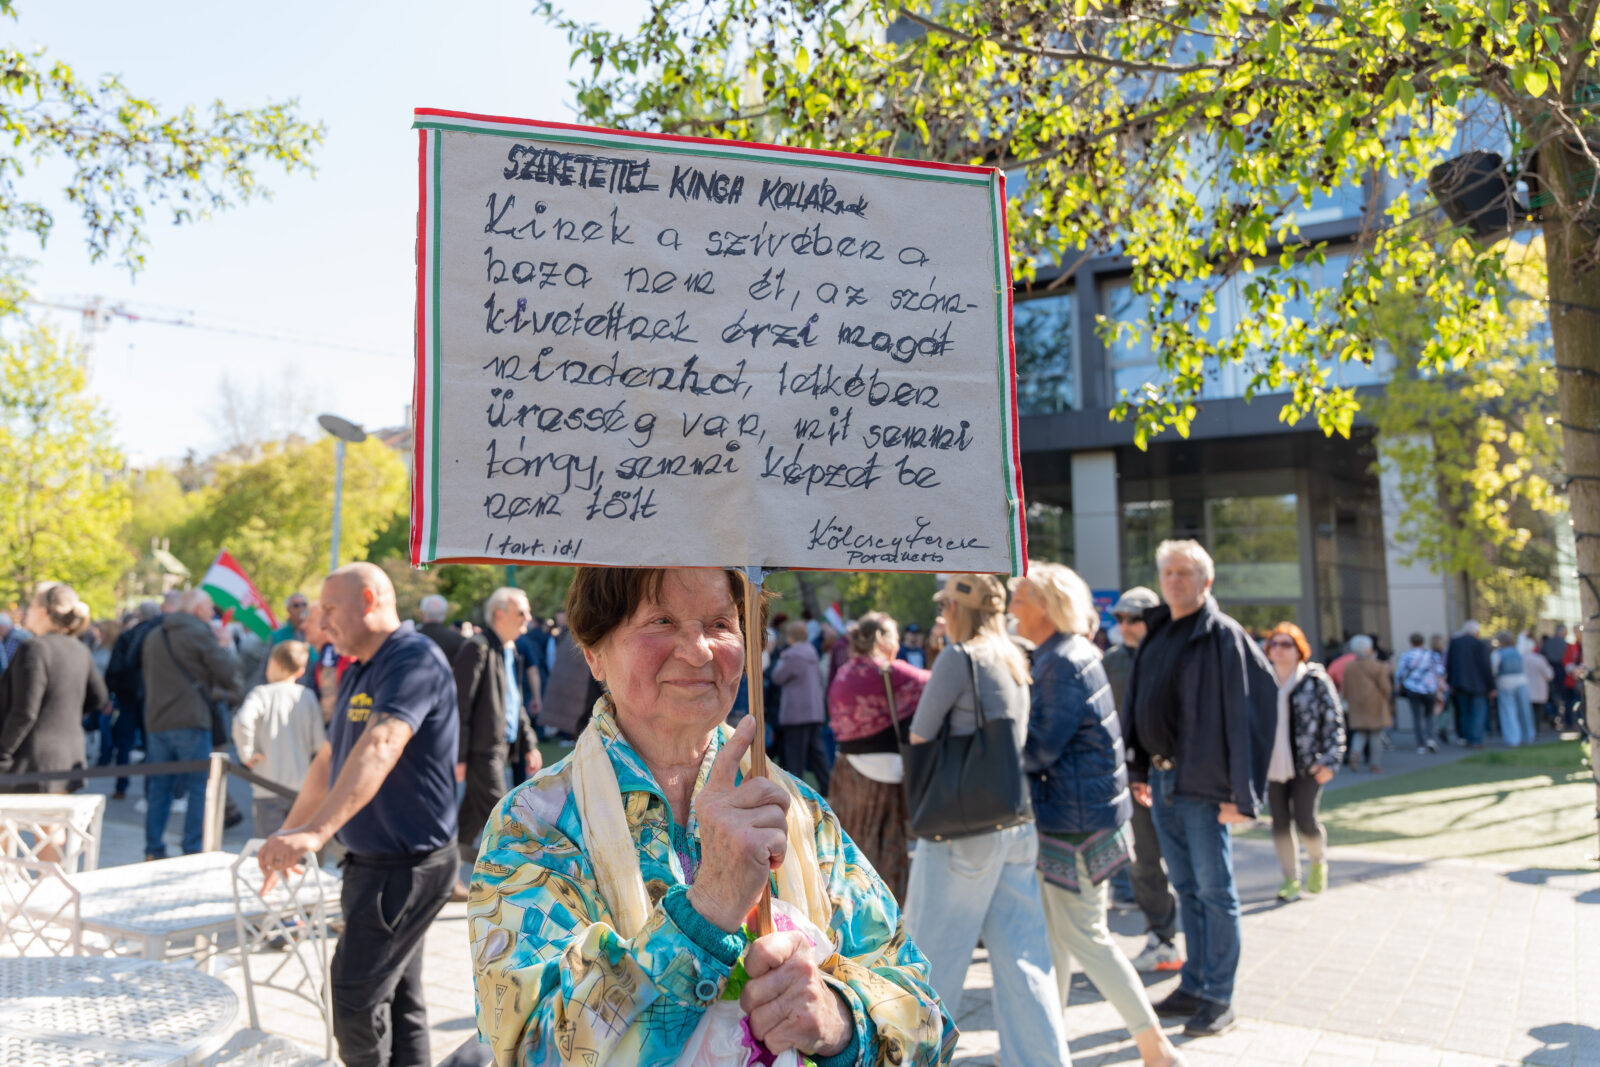 SZERETETTEL KINGA KOLLÁRnak
Kinek a szívében a
haza nem él, az szám-
kivetettnek érzi magát
mindenhol, lelkében
üresség van, mit semmi
tárgy, semmi képzet be
nem tölt
/tört. id./
Kölcsey Ferenc
Parainesis